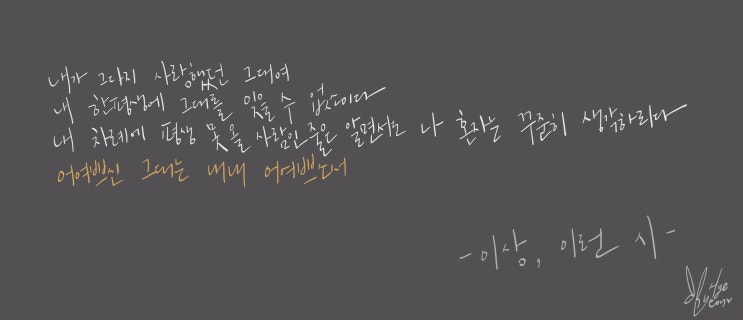 내가 그다지 사랑했던 그대여
내 한평생에 그대를 잊을 수 없소이다
내 차례에 평생 못올 사람인줄은 알면서도 나 혼자는 꾸준히 생각하리다
어여쁘신 그대는 내내 어여쁘소서
-이상, 이런 시-